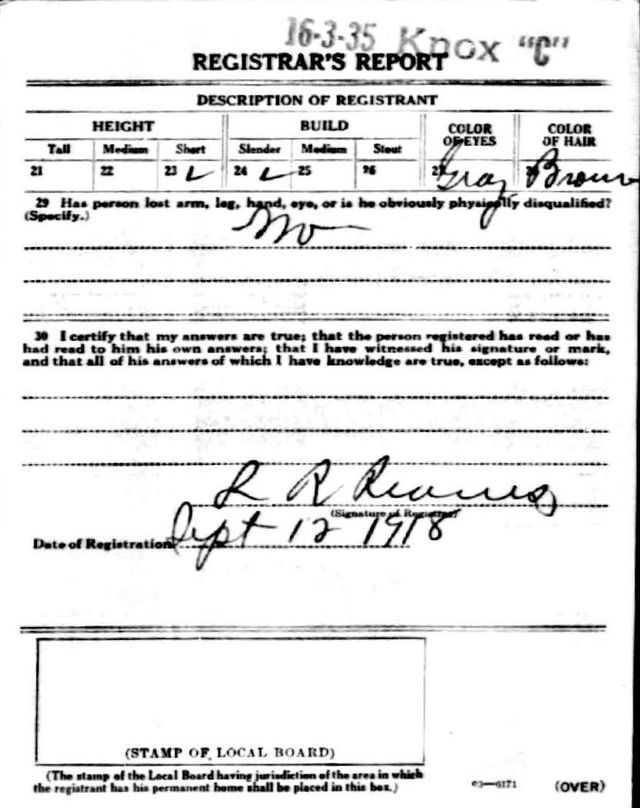 16-3-35 Knox "C"
REGISTRAR'S REPORT
DESCRIPTION OF REGISTRANT
HEIGHT BUILD COLOR OF EYES COLOR OF HAIR
Tall Medium Short Slender Medium Stout
21 22 23 ✓ 24 ✓ 25 26 27 Gray 28 Brown
29 Has person lost arm, leg, hand, eye, or is he obviously physically disqualified?
(Specify.) No
30 I certify that my answers are true; that the person registered has read or has
had read to him his own answers; that I have witnessed his signature or mark,
and that all of his answers of which I have knowledge are true, except as follows:
L R
(Signature of Registrar)
Date of Registration Sept 12 1918
(STAMP OF LOCAL BOARD)
(The stamp of the Local Board having jurisdiction of the area in which
the registrant has his permanent home shall be placed in this box.)
03—6171 (OVER)